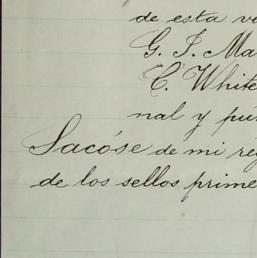 de esta
G. I. Ma
C. White
nal y pú
Sacóse de mi reg
de los sellos prime